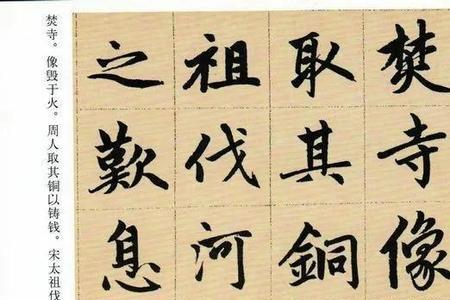 焚寺像
取其銅
祖伐河
之歎息
焚寺。像毁于火。周人取其铜以铸钱。宋太祖伐